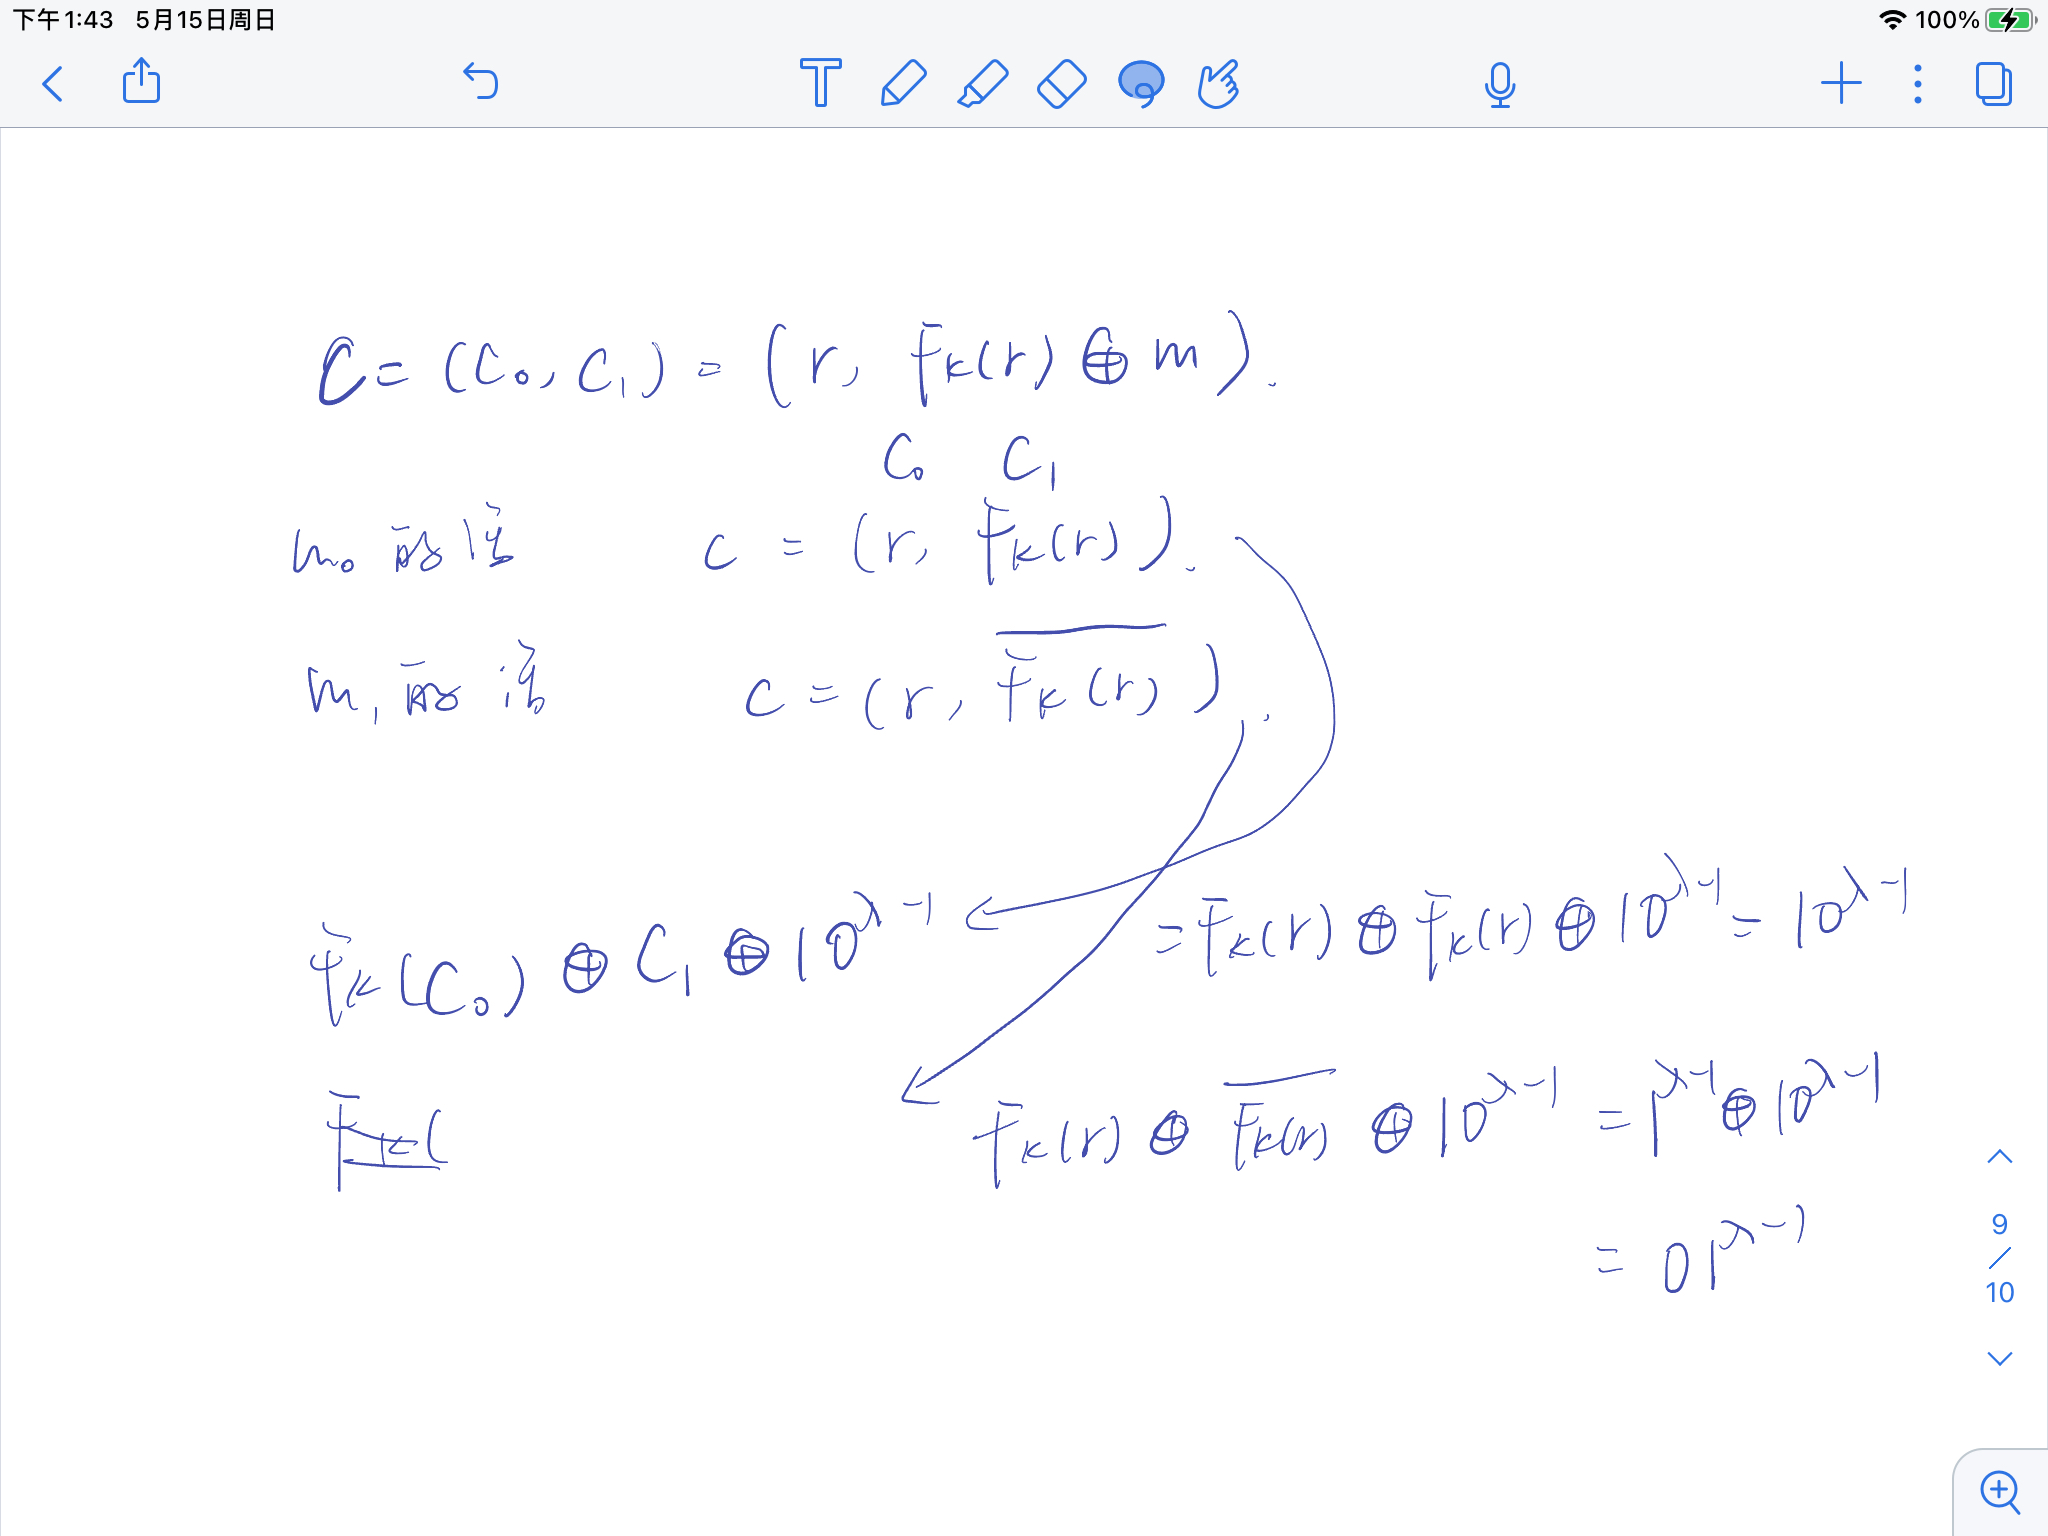 下午1:43 5月15日周日 100%
C = (C₀, C₁) = (r, F_k(r) ⊕ m).
C₀ C₁
m₀ 的话 c = (r, F_k(r)).
m₁ 的话 c = (r, \overline{F_k(r)}).
F_k(C₀) ⊕ C₁ ⊕ 10^{λ-1} = F_k(r) ⊕ F_k(r) ⊕ 10^{λ-1} = 10^{λ-1}
F_k( F_k(r) ⊕ \overline{F_k(r)} ⊕ 10^{λ-1} = 1^{λ-1} ⊕ 10^{λ-1}
= 01^{λ-1}
9
/
10